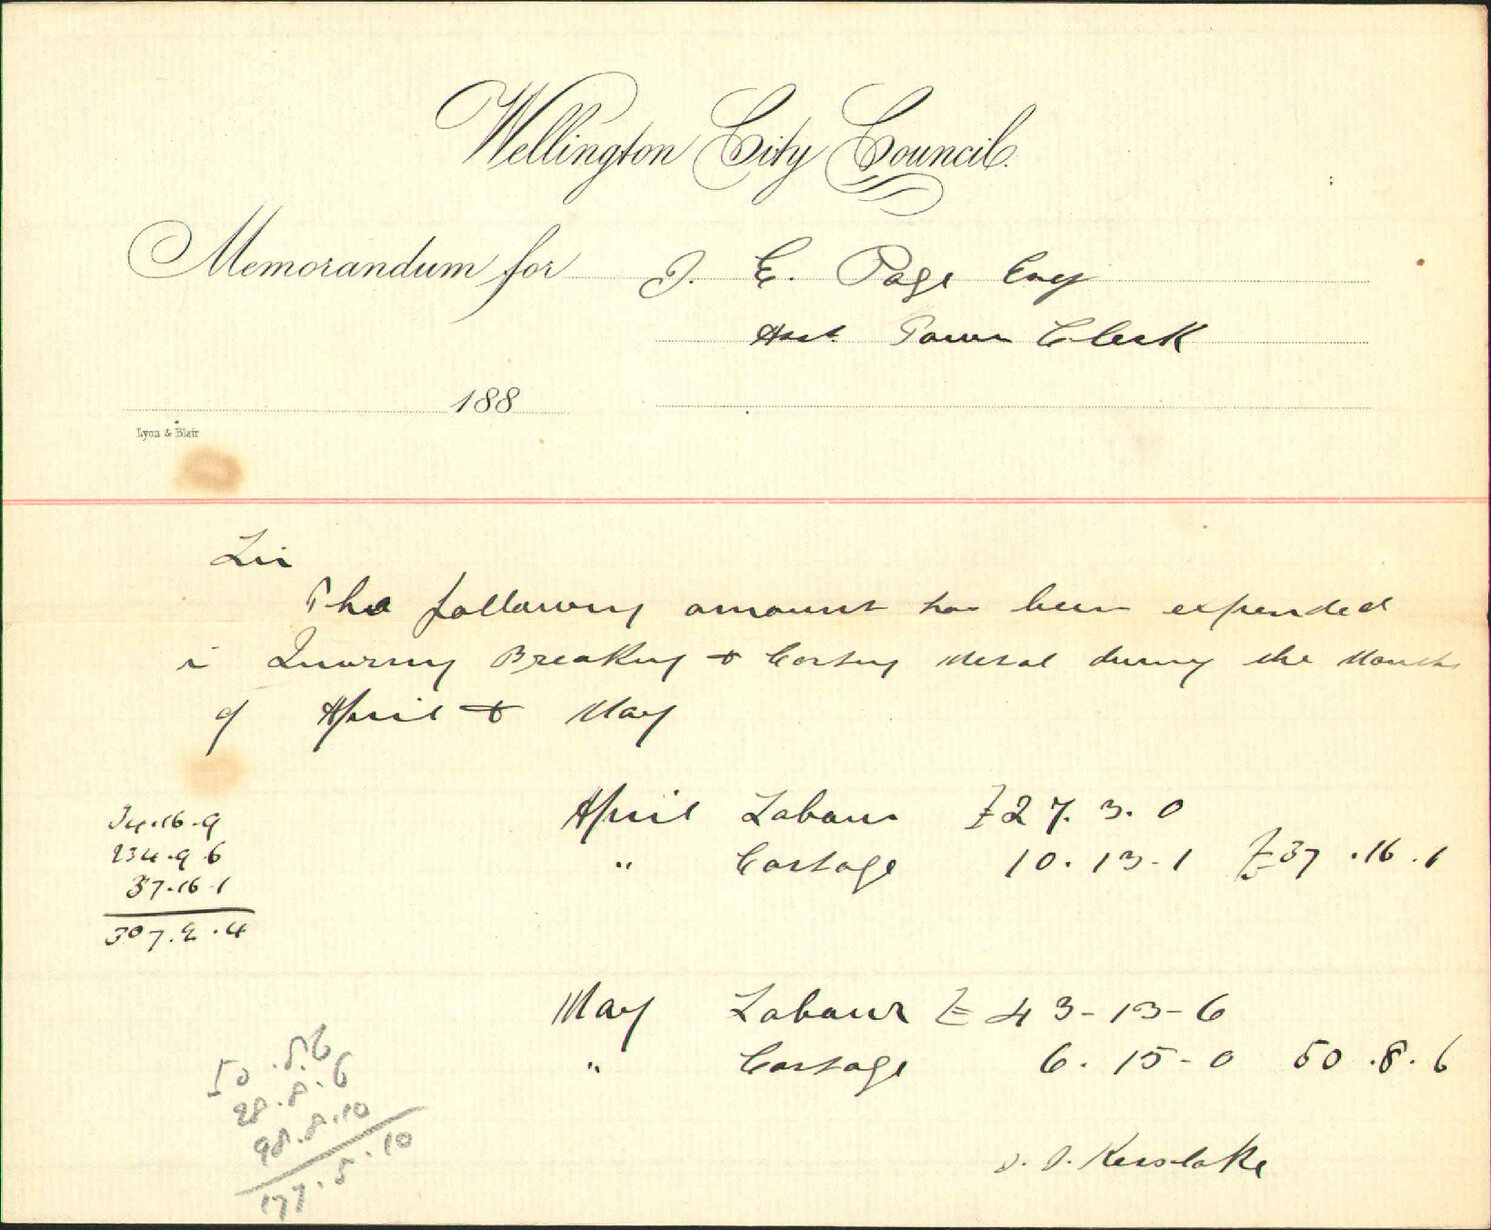 Wellington City Council.
Memorandum for J. E. Page Esq
Asst. Town Clerk
188
Lyon & Blair
Sir
The following amount has been expended
in Quarrying Breaking & Carting Metal during the Months
of April & May
April Labour £27. 3. 0
" Cartage 10. 13. 1 £37. 16. 1
34. 16. 9
234. 9. 6
37. 16. 1
307. 2. 4
May Labour £43-13-6
" Cartage 6. 15-0 50. 8. 6
50. 8. 6
28. 8. 6
98. 8. 10
177. 5. 10
Kerslake